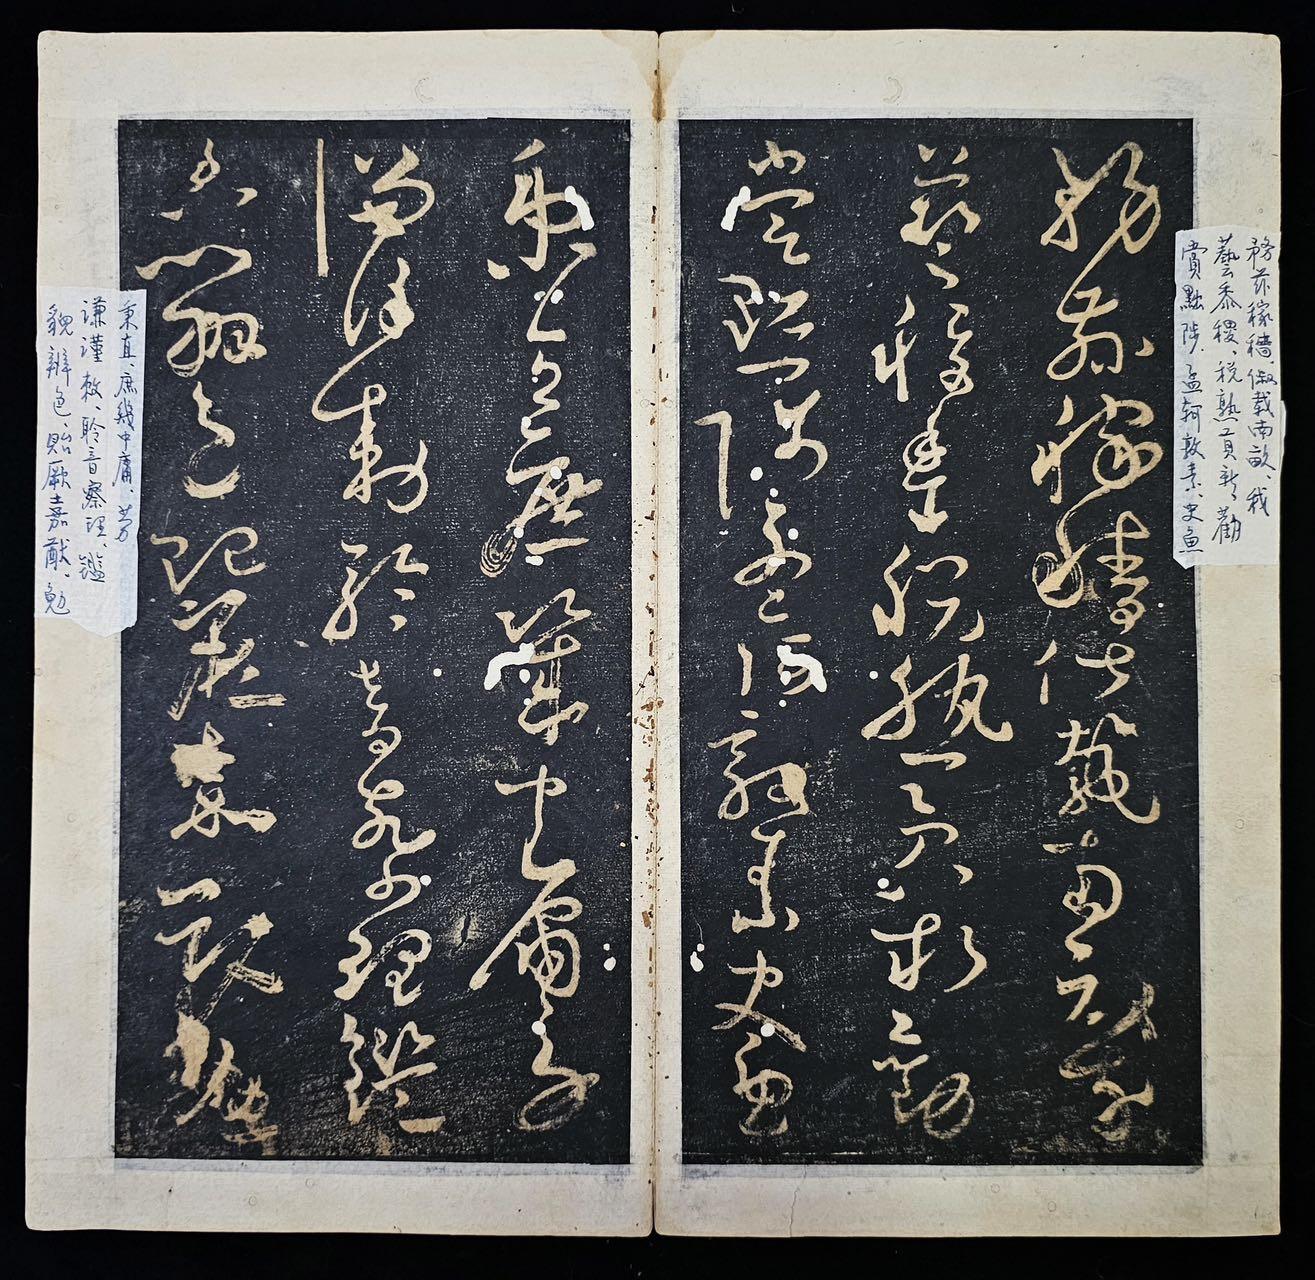 務茲稼穡、俶載南畝、我
藝黍稷、稅熟貢新、勸
賞黜陟、孟軻敦素、史魚
務茲稼穡俶載南畝我
藝黍稷稅熟貢新勸
賞黜陟孟軻敦素史魚
秉直庶幾中庸勞
謙謹敕聆音察理鑑
貌辨色貽厥嘉猷勉
秉直、庶幾中庸、劳
謙謹敕、聆音察理、鑑
貌辨色、貽厥嘉猷、勉